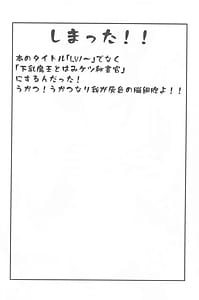 しまった！！
本のタイトル「LV1〜」でなく
「下乳魔王とはみケツ秘書官」
にするんだった！
うかつ！うかつなり我が灰色の脳細胞よ！！